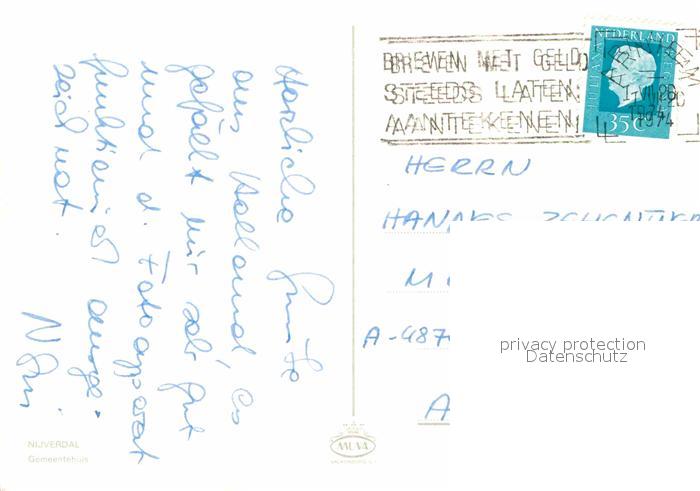 Herzliche Grüße
aus Holland, es
gefällt mir sehr gut
und d. Fotoapparat
funktioniert ausge-
zeichnet.
NIJVERDAL
Gemeentehuis
MUVA
BRIEVEN MET GELD
STEEDS LATEN
AANTEKENEN
NEDERLAND
JULIANA
35c
1974
HERRN
HANNES
M
A-487
A
privacy protection
Datenschutz